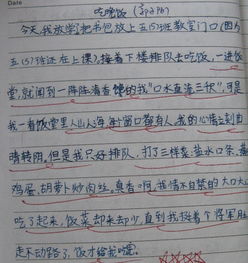 Date
吃晚饭
今天,我放学把书包放上五(5)班教室门口(因为
五(5)班还在上课),接着下楼排队去吃饭,一进饭
堂,就闻到一阵阵清香馋的我"口水直流三积",可是
我一看饭堂里人山人海,每个窗口都有人,我的心情立刻由
晴转阴,但是我只好排队,打了三样菜:盐水口条、蒸
鸡蛋、胡萝卜炒肉丝,真香啊,我情不自禁的大口大口
吃了起来,饭菜却来却少,直到我挺着个将军肚
走不动路了,饭才给我吃完。